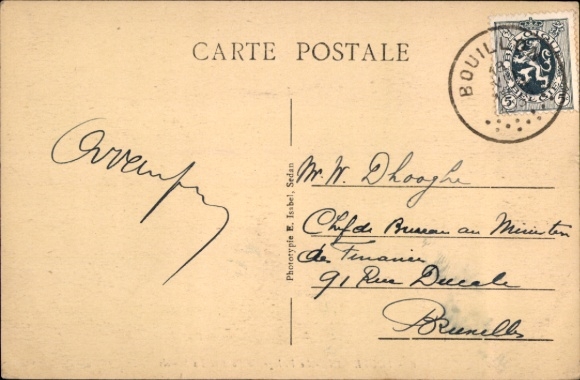 CARTE POSTALE
BOUILL
BELGIQUE
BELGIE
5 5
Mr. W. Dhooghe
Chef de Bureau au Ministère
des Finances
91 Rue Ducale
Bruxelles
Phototypie E. Isabel, Sedan